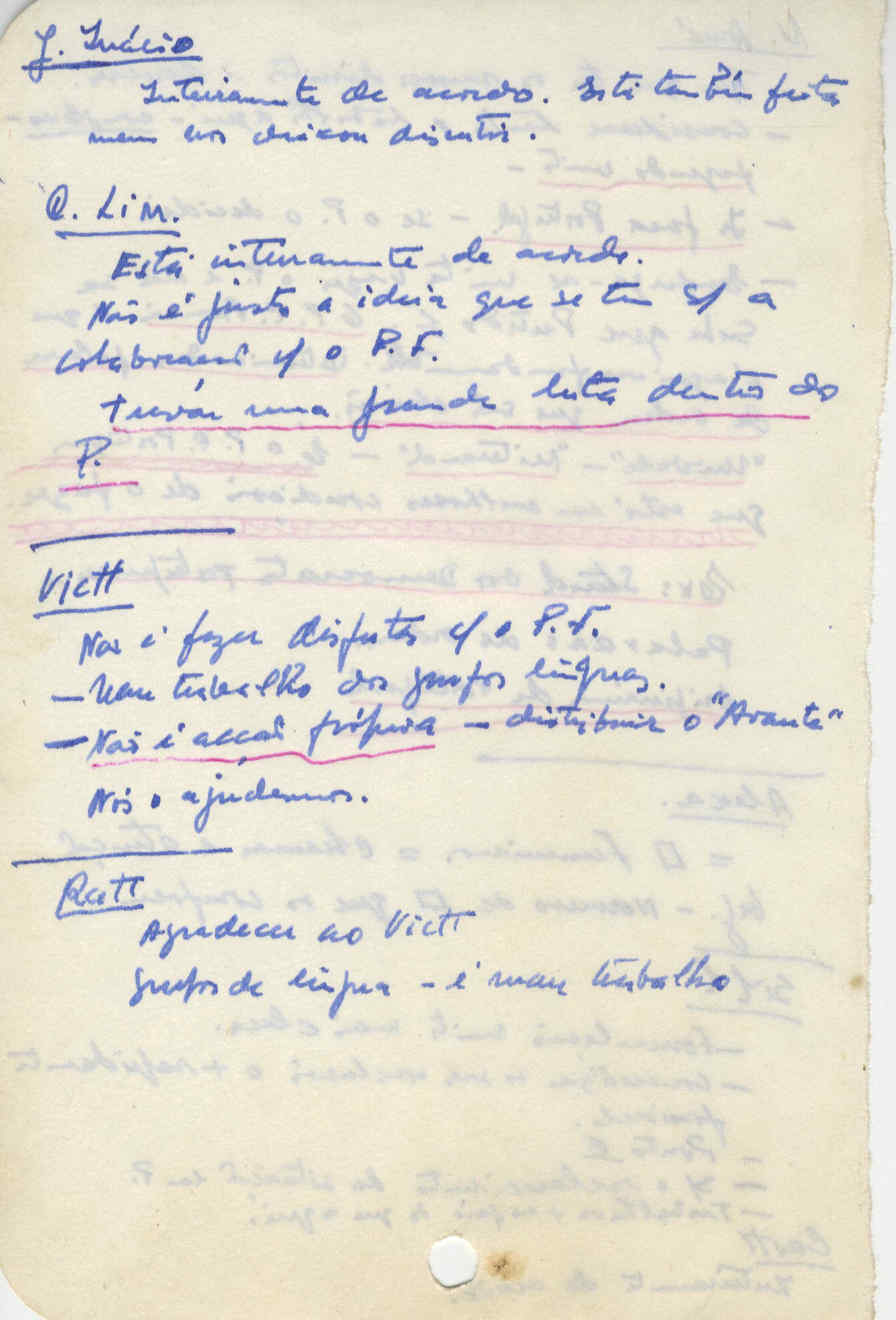 J. Inácio
Inteiramente de acordo. Está também feita
nem nos deixou discutir.
C. Lim.
Está inteiramente de acordo.
Não é justo a ideia que se tem s/ a
colaboração c/ o P.F.
travar uma grande luta dentro do
P.
Victt
Não é fazer disputas c/ o P.F.
- Mau trabalho dos grupos línguas.
- Não é acção própria - distribuir o "Avante"
Nós o ajudamos.
Agradecer ao Victt
Grupos de língua - é mau trabalho